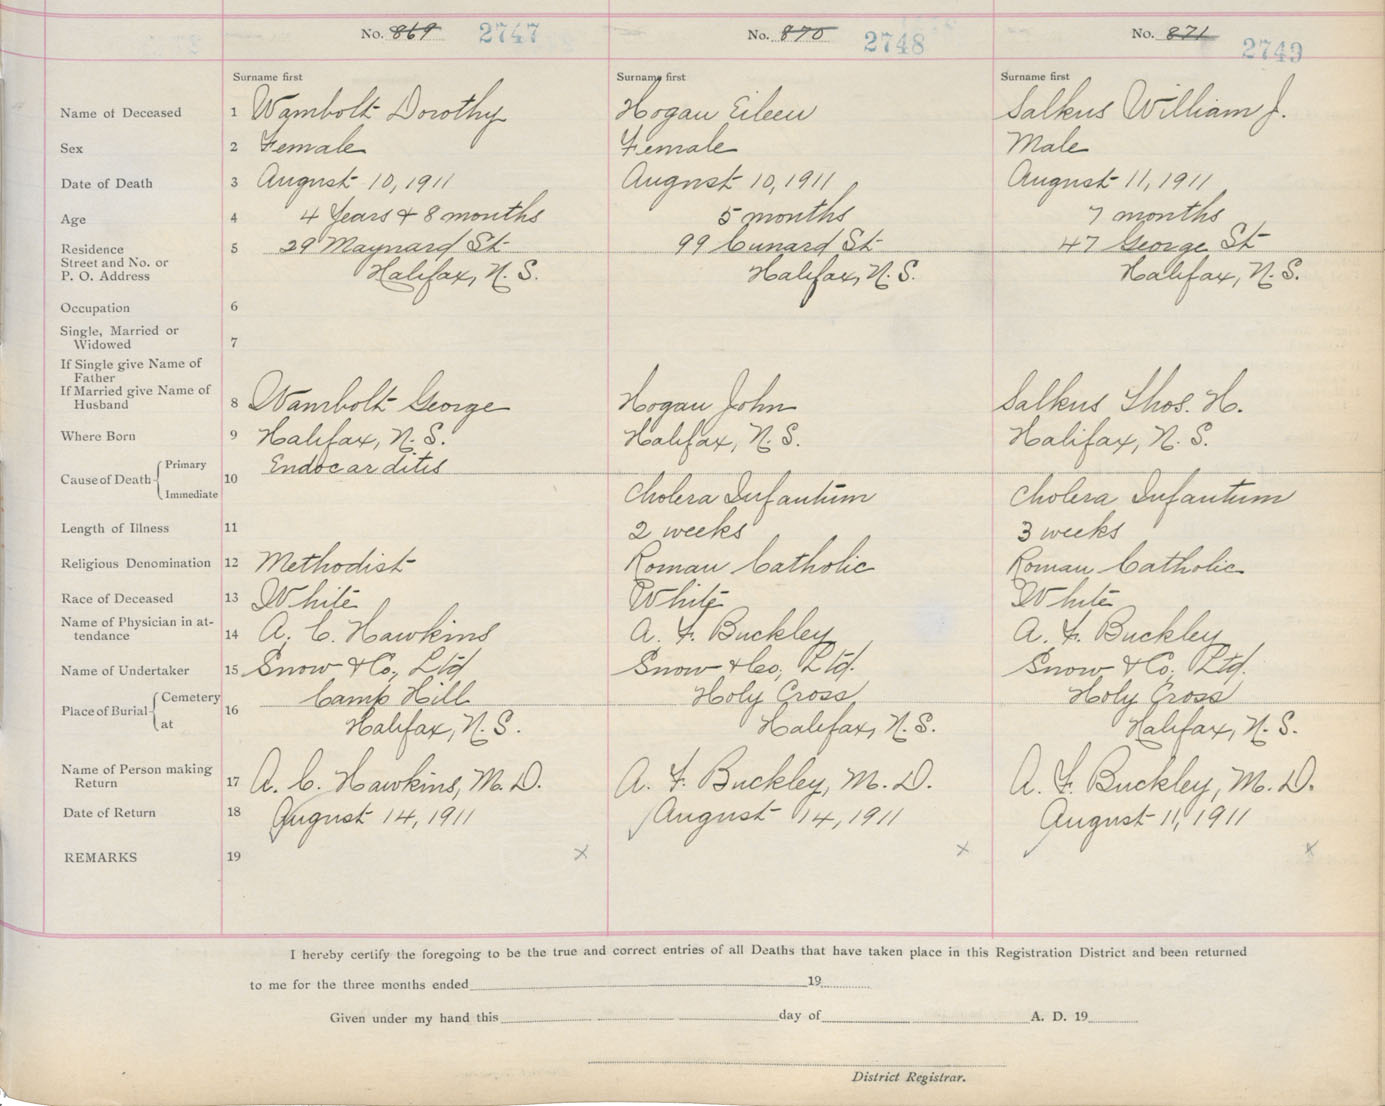 No. 869 2747 No. 870 2748 No. 871 2749
Surname first Surname first Surname first
Name of Deceased 1 Wambolt Dorothy Hogan Eileen Salkus William J.
Sex 2 Female Female Male
Date of Death 3 August 10, 1911 August 10, 1911 August 11, 1911
Age 4 4 Years & 8 months 5 months 7 months
Residence 5 29 Maynard St 99 Cunard St 47 George St
Street and No. or
P. O. Address Halifax, N. S. Halifax, N. S. Halifax, N. S.
Occupation 6
Single, Married or
Widowed 7
If Single give Name of
Father
If Married give Name of
Husband 8 Wambolt George Hogan John Salkus Thos. H.
Where Born 9 Halifax, N. S. Halifax, N. S. Halifax, N. S.
Cause of Death Primary 10 Endocarditis
Immediate Cholera Infantum Cholera Infantum
Length of Illness 11 2 weeks 3 weeks
Religious Denomination 12 Methodist Roman Catholic Roman Catholic
Race of Deceased 13 White White White
Name of Physician in at-
tendance 14 A. C. Hawkins A. F. Buckley A. F. Buckley
Name of Undertaker 15 Snow & Co., Ltd Snow & Co., Ltd. Snow & Co., Ltd.
Place of Burial Cemetery 16 Camp Hill Holy Cross Holy Cross
at Halifax, N. S. Halifax, N. S. Halifax, N. S.
Name of Person making
Return 17 A. C. Hawkins, M. D. A. F. Buckley, M. D. A. F. Buckley, M. D.
Date of Return 18 August 14, 1911 August 14, 1911 August 11, 1911
REMARKS 19 x x x
I hereby certify the foregoing to be the true and correct entries of all Deaths that have taken place in this Registration District and been returned
to me for the three months ended 19
Given under my hand this day of A. D. 19
District Registrar.